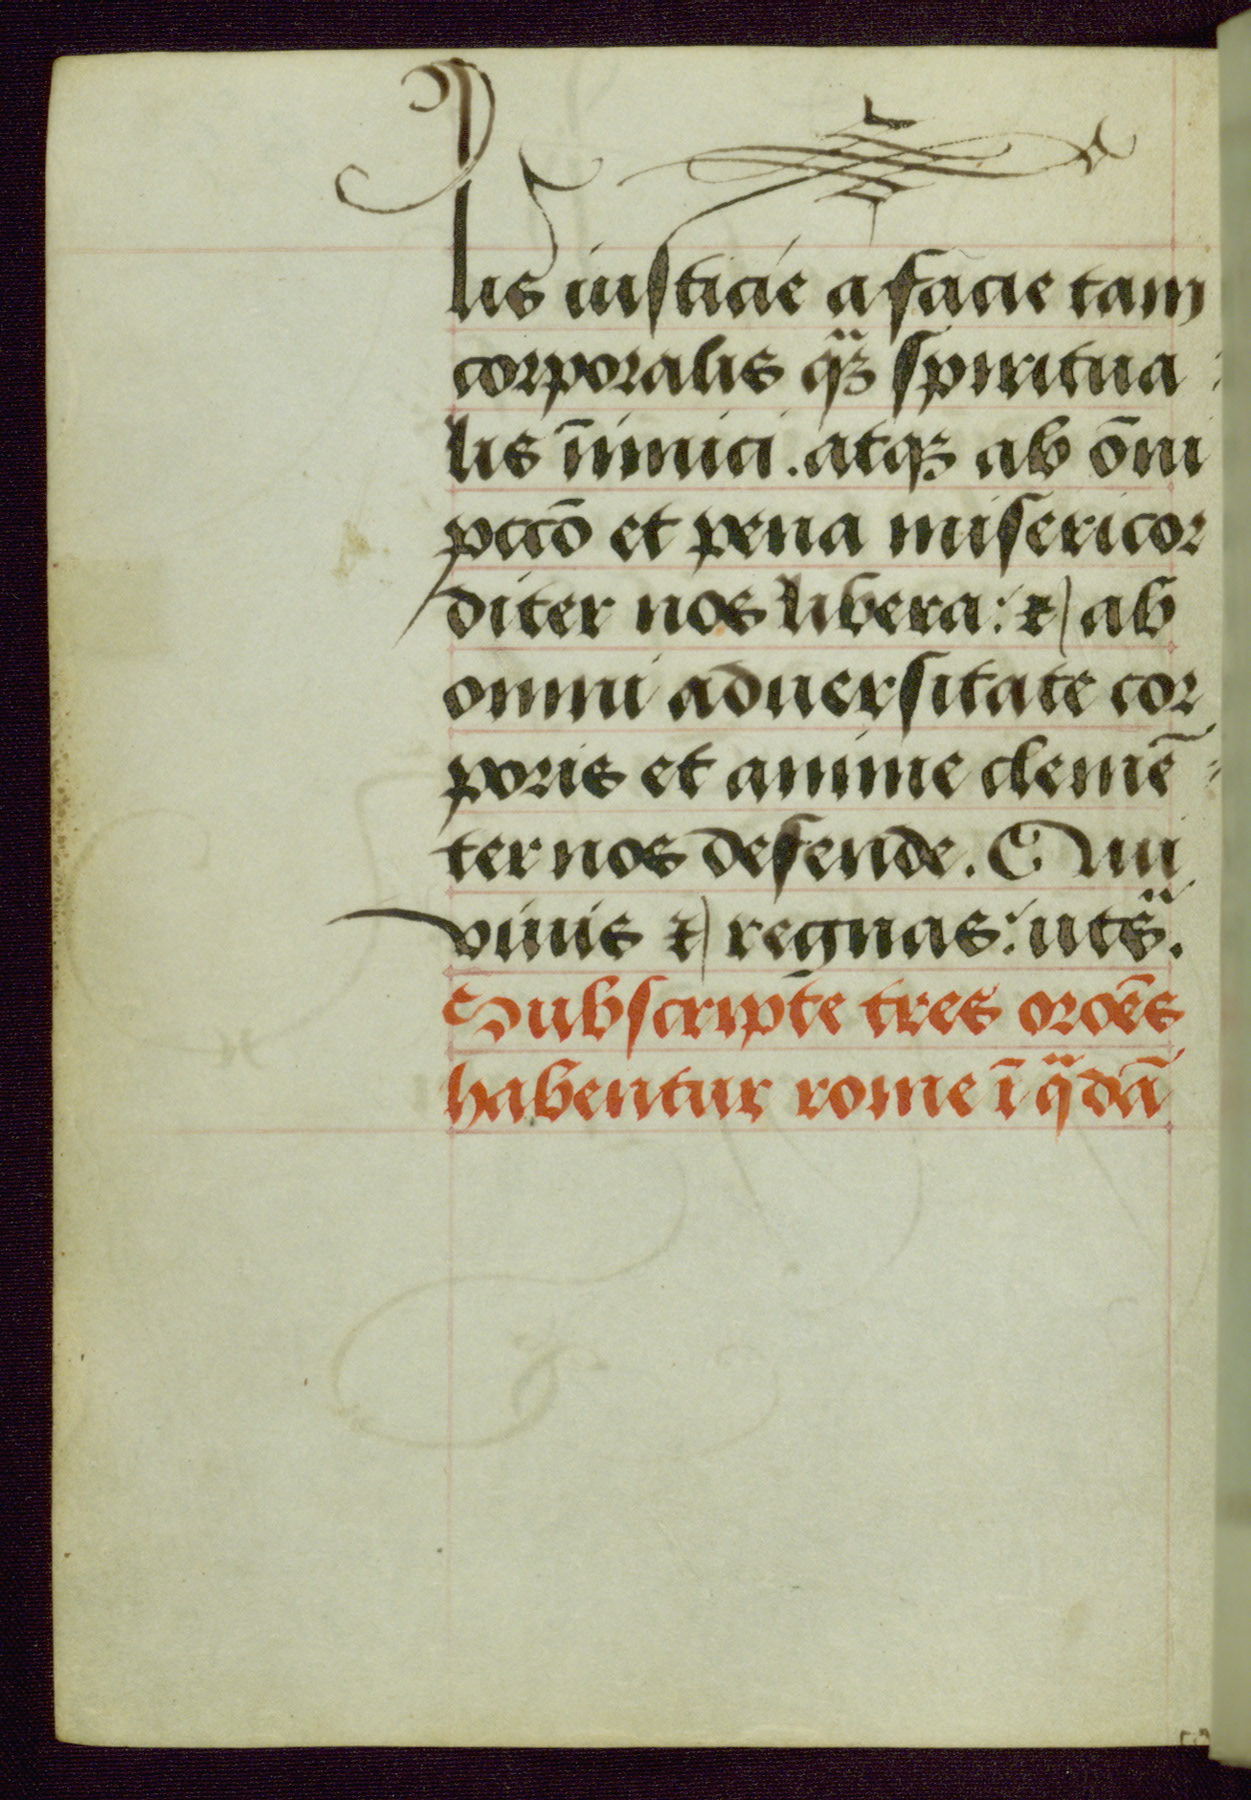 lis iusticie a facie tam
corporalis qz̈ spiritua
lis īimici . atqz ab om̄i
pctō et pena misericor
diter nos libera : et ab
omni aduersitate cor
poris et anime clemē
ter nos defende . Qui
viuis et regnas : ut s̈ .
Subscript̄e tres orōēs
habentur rome ī q̈dā